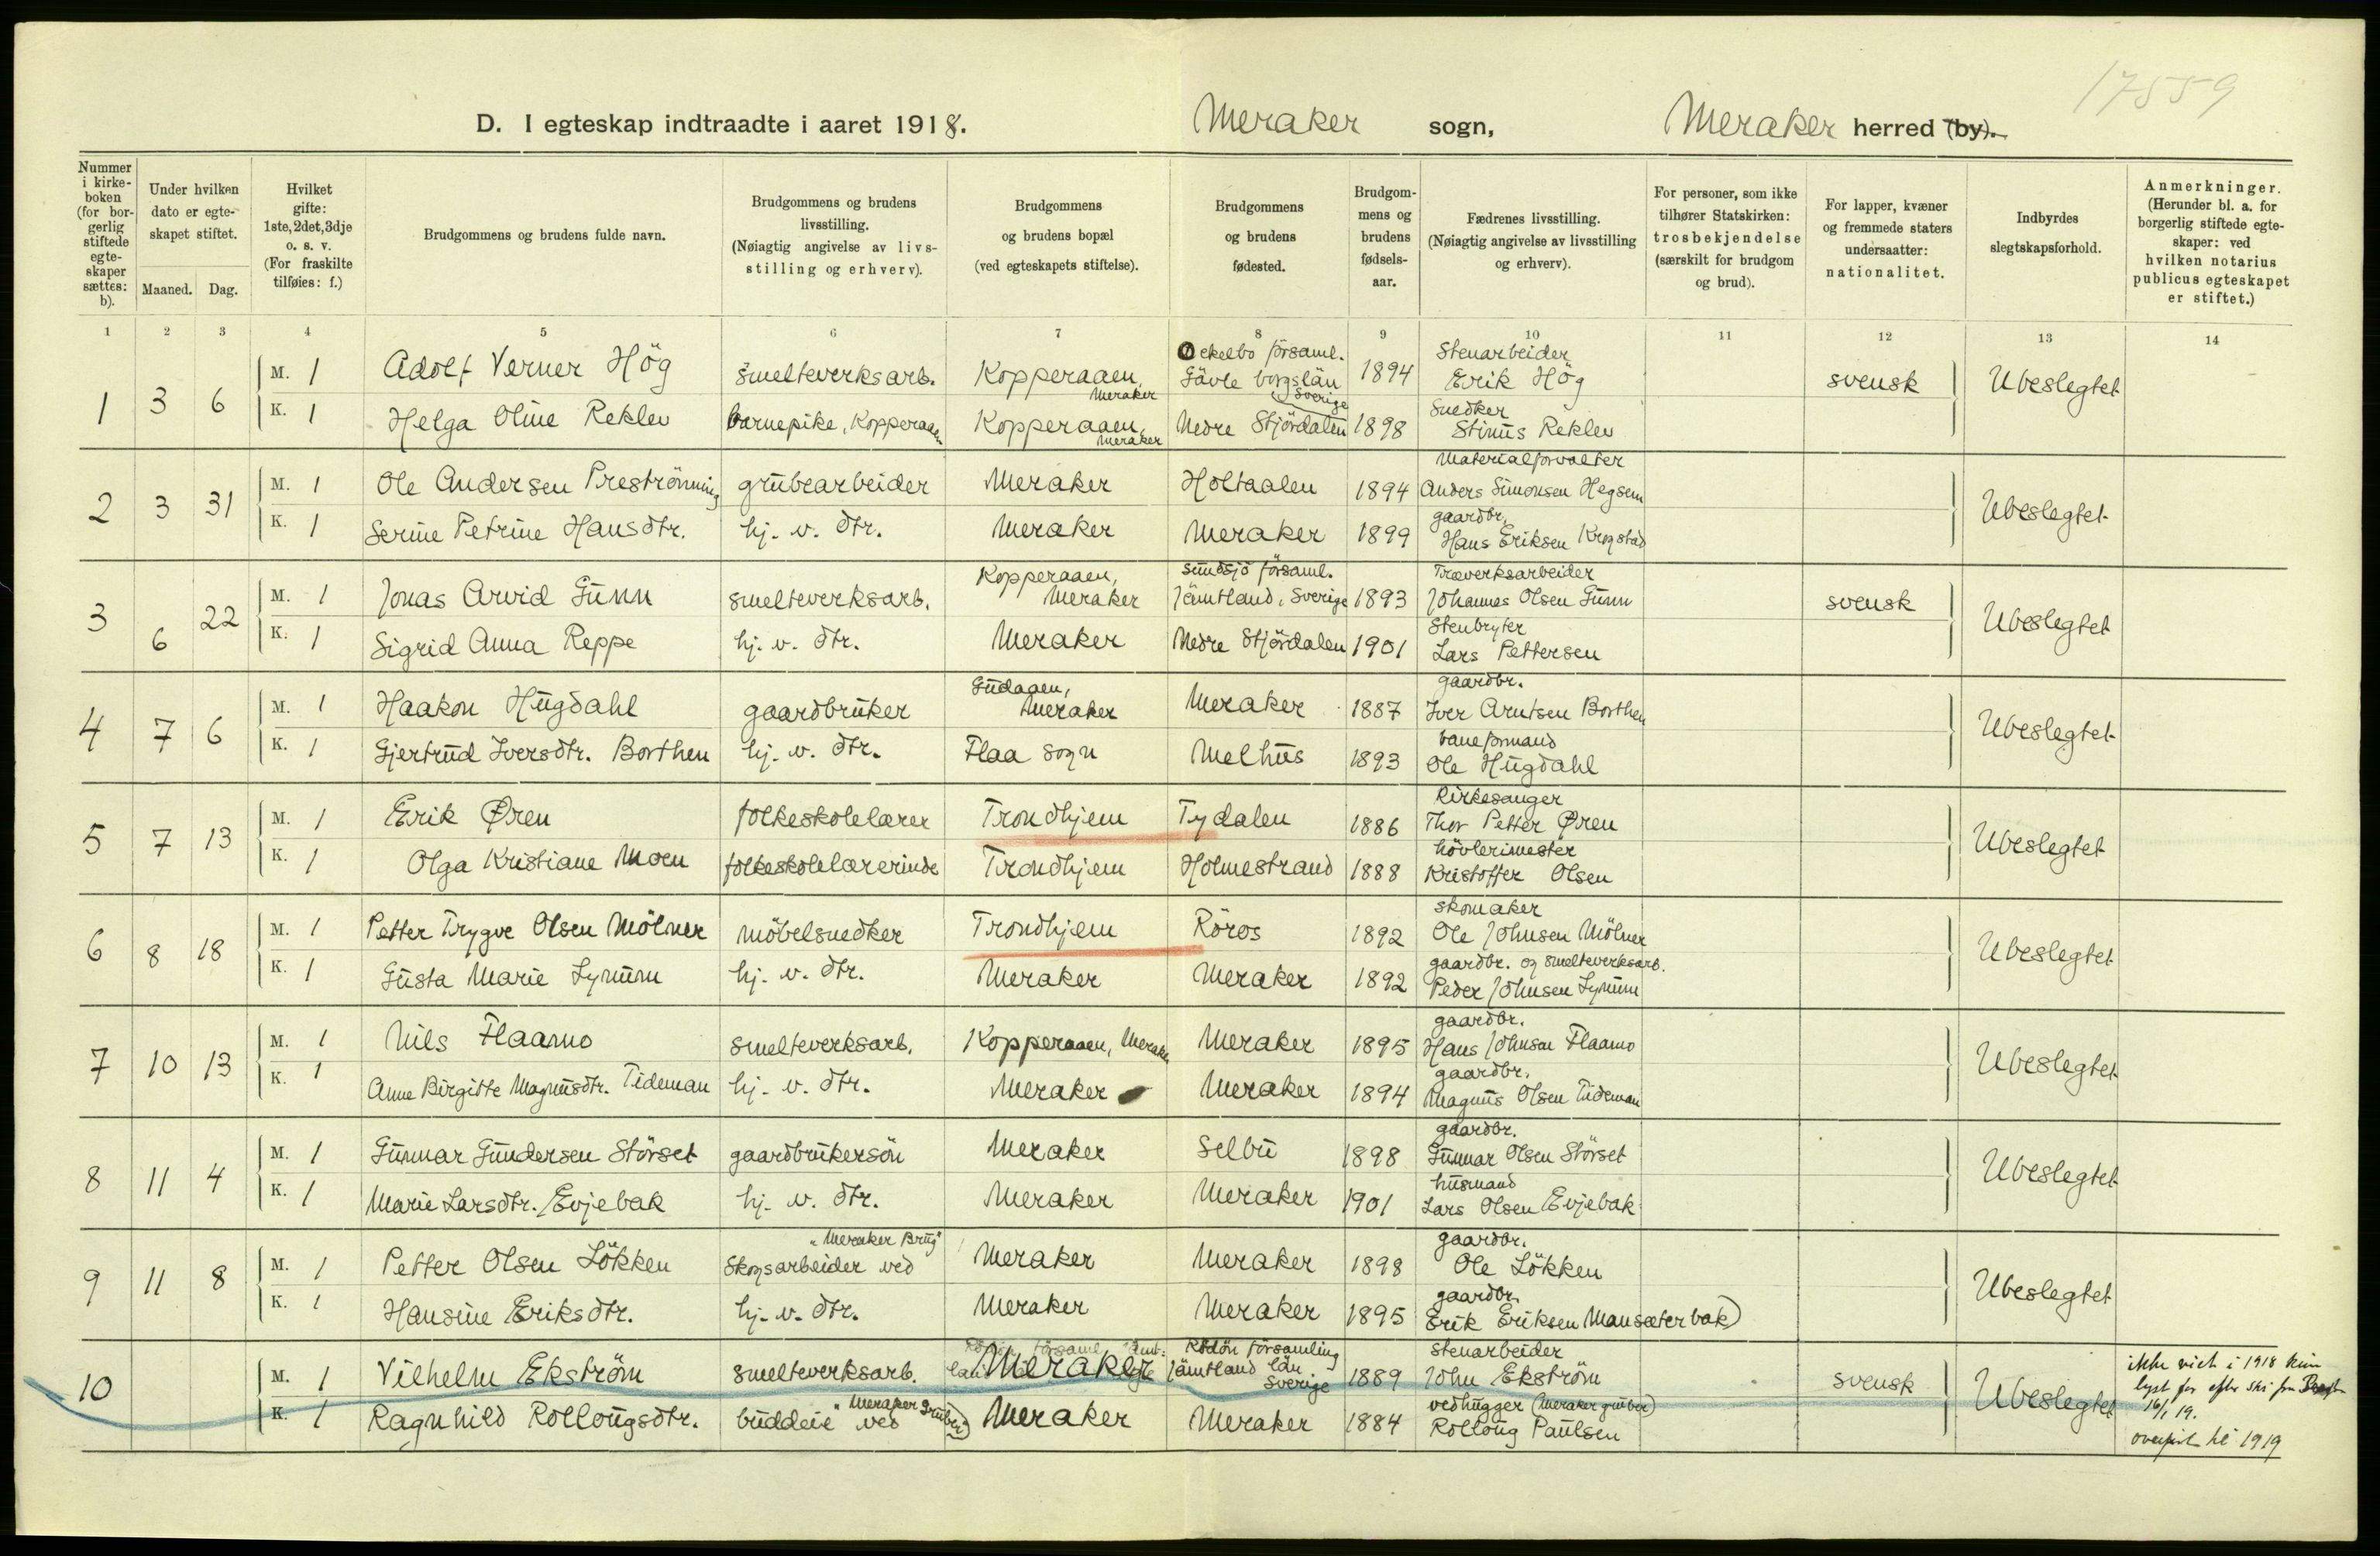 17559
D. I egteskap indtraadte i aaret 1918. Meraker sogn, Meraker herred (by).
Nummer i kirkeboken (for borgerlig stiftede egteskaper sættes: b).
Under hvilken dato er egteskapet stiftet.
Maaned. Dag.
Hvilket gifte: 1ste, 2det, 3dje o. s. v. (For fraskilte tilføies: f.)
Brudgommens og brudens fulde navn.
Brudgommens og brudens livsstilling. (Nøiagtig angivelse av livsstilling og erhverv).
Brudgommens og brudens bopæl (ved egteskapets stiftelse).
Brudgommens og brudens fødested.
Brudgommens og brudens fødselsaar.
Fædrenes livsstilling. (Nøiagtig angivelse av livsstilling og erhverv).
For personer, som ikke tilhører Statskirken: trosbekjendelse (særskilt for brudgom og brud).
For lapper, kvæner og fremmede staters undersaatter: nationalitet.
Indbyrdes slegtskapsforhold.
Anmerkninger. (Herunder bl. a. for borgerlig stiftede egteskaper: ved hvilken notarius publicus egteskapet er stiftet.)
1 2 3 4 5 6 7 8 9 10 11 12 13 14
1 3 6 M. 1 Adolf Verner Hög smelteverksarb. Kopperaaen, Meraker Ockelbo församl. Gävle borgslän Sverige 1894 Stenarbeider Erik Hög svensk Ubeslegtet
K. 1 Helga Oline Reklev barnepike, Kopperaaen Kopperaaen, Meraker Nedre Stjördalen 1898 Snedker Stinus Reklev
2 3 31 M. 1 Ole Andersen Preströnning grubearbeider Meraker Holtaalen 1894 Materialforvalter Anders Simonsen Hegsem Ubeslegtet
K. 1 Serine Petrine Hansdtr. hj. v. dtr. Meraker Meraker 1899 gaardbr. Hans Eriksen Krogstad
3 6 22 M. 1 Jonas Arvid Gunn smelteverksarb. Kopperaaen, Meraker Sundsjö församl. Jämtland, Sverige 1893 Træverksarbeider Johannes Olsen Gunn svensk Ubeslegtet
K. 1 Sigrid Anna Reppe hj. v. dtr. Meraker Nedre Stjördalen 1901 Stenbryter Lars Pettersen
4 7 6 M. 1 Haakon Hugdahl gaardbruker Gudaaen, Meraker Meraker 1887 gaardbr. Iver Arntsen Borthen Ubeslegtet
K. 1 Gjertrud Iversdtr. Borthen hj. v. dtr. Flaa sogn Melhus 1893 baneformand Ole Hugdahl
5 7 13 M. 1 Erik Øren folkeskolelærer Trondhjem Tydalen 1886 Kirkesanger Thor Petter Øren Ubeslegtet
K. 1 Olga Kristiane Moen folkeskolelærerinde Trondhjem Holmestrand 1888 hövlerimester Kristoffer Olsen
6 8 18 M. 1 Petter Trygve Olsen Mölner möbelsnedker Trondhjem Röros 1892 skomaker Ole Johnsen Mölner Ubeslegtet
K. 1 Gusta Marie Lynum hj. v. dtr. Meraker Meraker 1892 gaardbr. og smelteverksarb. Peder Johnsen Lynum
7 10 13 M. 1 Nils Flaamo smelteverksarb. Kopperaaen, Meraker Meraker 1895 gaardbr. Hans Johnsen Flaamo Ubeslegtet
K. 1 Anne Birgitte Magnusdtr. Tideman hj. v. dtr. Meraker Meraker 1894 gaardbr. Magnus Olsen Tideman
8 11 4 M. 1 Gunnar Gundersen Störset gaardbrukersön Meraker Selbu 1898 gaardbr. Gunnar Olsen Störset Ubeslegtet
K. 1 Marie Larsdtr. Evjebak hj. v. dtr. Meraker Meraker 1901 husmand Lars Olsen Evjebak
9 11 8 M. 1 Petter Olsen Lökken Skogsarbeider ved "Meraker Brug" Meraker Meraker 1898 gaardbr. Ole Lökken Ubeslegtet
K. 1 Hansine Eriksdtr. hj. v. dtr. Meraker Meraker 1895 gaardbr. Erik Eriksen Mansæterbak)
10 M. 1 Vilhelm Ekström smelteverksarb. Meraker Rödön församling Jämtland län Sverige 1889 stenarbeider John Ekström svensk Ubeslegtet ikke viet i 1918 kun lyst for efter ski fra 16/1 19. overført til 1919
K. 1 Ragnhild Rollougsdtr. buddeie ved "Meraker Gruber" Meraker Meraker 1884 vedhugger (Meraker gruber) Rolloug Paulsen